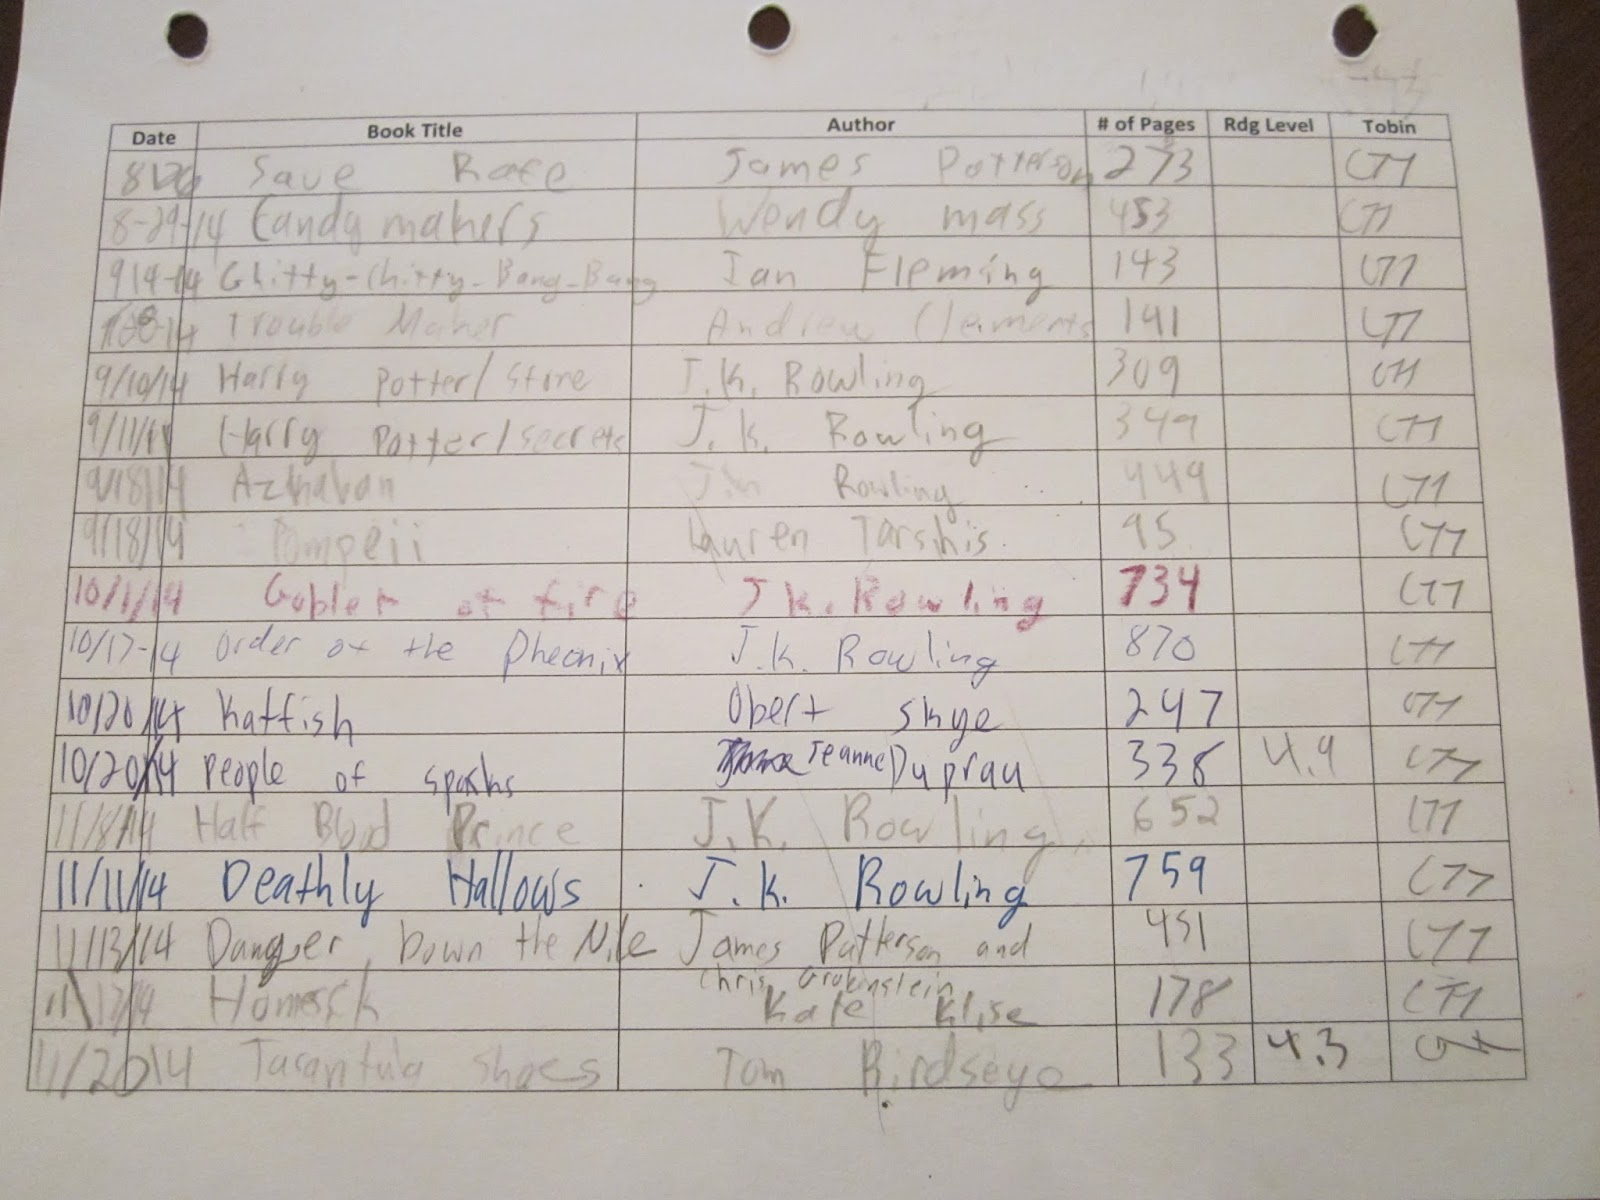 Date Book Title Author # of Pages Rdg Level Tobin
Save Rafe James Patterson 273
8-29-14 Candy makers Wendy mass 453
914-14 Chitty-Chitty-Bang-Bang Ian Fleming 143
Trouble Maker Andrew Clements 141
9/10/14 Harry Potter/Stone J.K. Rowling 309
9/11/14 Harry Potter/secrets J.K. Rowling 349
9/18/14 Azkaban Rowling 449
9/18/14 Pompeii Lauren Tarshis 95
10/1/14 Goblet of fire J K. Rowling 734
10/17-14 Order of the Pheonix J.K. Rowling 870
10/20/14 Katfish Obert Skye 247
10/20/14 People of sparks Jeanne Duprau 338 4.9
11/8/14 Half Blood Prince J.K. Rowling 652
11/11/14 Deathly Hallows J.K. Rowling 759
11/13/14 Danger Down the Nile James Patterson and 451
Chris Grabenstein
17/14 Kate Klise 178
11/2014 Tarantula Shoes Tom Birdseye 133 4.3